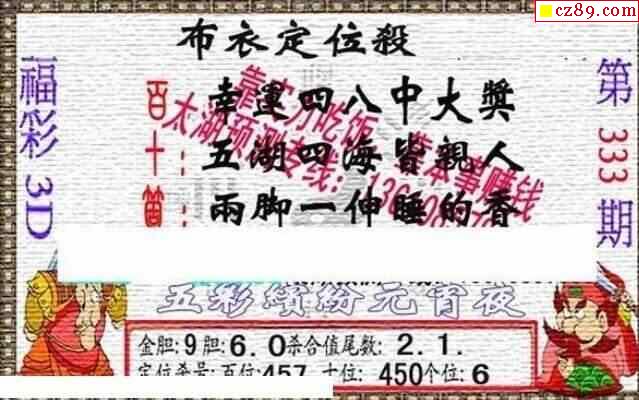 cz89.com
布衣定位殺
福彩3D
第333期
百：幸運四八中大獎
十：五湖四海皆親人
兩脚一伸睡的香
靠实力吃饭 靠本事赚钱
太湖预测专线：13
五彩繽紛元宵夜
金胆:9胆:6.0杀合值尾数:2.1.
定位杀号:百位:457 十位:450个位:6